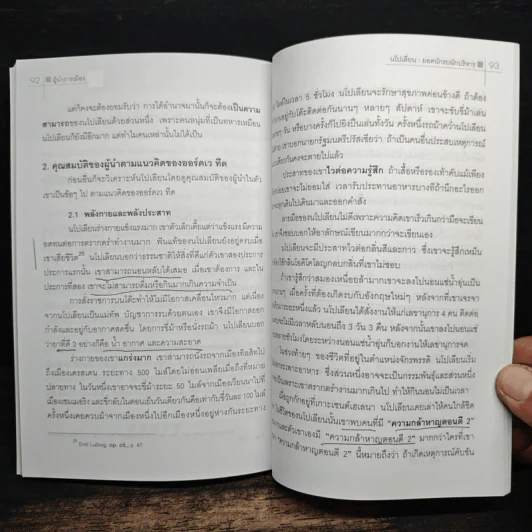 92 ผู้นำการเมือง
แต่ก็คงจะต้องยอมรับว่า การได้อำนาจมานั้นก็จะต้องเป็นความ
สามารถของนโปเลียนด้วยส่วนหนึ่ง เพราะคนหนุ่มที่เป็นทหารเหมือน
นโปเลียนก็ยังมีอีกมาก แต่ทำไมคนเหล่านั้นไม่ได้เป็น
2. คุณสมบัติของผู้นำตามแนวคิดของออร์ดเว ทีด
ก่อนอื่นก็จะวิเคราะห์นโปเลียนโดยดูคุณสมบัติของผู้นำในตัว
เขาเป็นข้อๆ ไป ตามแนวคิดของออร์ดเว ทีด
2.1 พลังกายและพลังประสาท
นโปเลียนร่างกายแข็งแรงมาก เขาตัวเล็กเตี้ยแต่ว่าแข็งแรง มีความ
อดทนต่อการตรากตรำทำงานมาก ฟันแท้ของนโปเลียนยังอยู่ครบเมื่อ
เขาเสียชีวิต นโปเลียนบอกว่าธรรมชาติให้สิ่งที่ดีแก่ตัวเขาสองประการ
ประการแรกนั้น เขาสามารถนอนหลับได้เสมอ เมื่อเขาต้องการ และใน
ประการที่สอง เขาจะไม่สามารถดื่มหรือกินมากเกินความจำเป็น
การสั่งราชการบนโต๊ะทำให้ไม่มีโอกาสเคลื่อนไหวมาก แต่เนื่อง
จากนโปเลียนเป็นแม่ทัพ บัญชาการรบด้วยตนเอง เขาจึงมีโอกาสออก
กำลังและอยู่กับอากาศสดชื่น โดยการขี่ม้าหรือนั่งรถม้า นโปเลียนบอก
ว่ายาที่ดี 3 อย่างก็คือ น้ำ อากาศ และความสะอาด
ร่างกายของเขาแกร่งมาก เขาสามารถนั่งรถจากเมืองทิลสิทไป
ถึงเมืองเดรสเดน ระยะทาง 500 ไมล์โดยไม่อ่อนเพลียเมื่อถึงที่หมาย
ปลายทาง ในวันหนึ่งเขาอาจจะขี่ม้าระยะ 50 ไมล์จากเมืองเวียนนาไปที่
ครั้งหนึ่งเคยควบม้าจากเมืองหนึ่งไปอีกเมืองหนึ่งอยู่ห่างกันระยะทาง
Emil Ludwig, op. cit., p. 47.
นโปเลียน : ยอดนักรบนักบริหาร 93
ไมล์ในเวลา 5 ชั่วโมง นโปเลียนจะรักษาสุขภาพค่อนข้างดี ถ้าต้อง
อยู่กับโต๊ะติดต่อกันนานๆ หลายๆ สัปดาห์ เขาจะขับขี่ม้าเล่น
วัน หรือบางครั้งก็ไปยิงปืนเล่นทั้งวัน ครั้งหนึ่งรถม้าคว่ำนโปเลียน
เขาบอกนายกรัฐมนตรีปรัสเซียว่า ถ้าเป็นคนอื่นประสบเหตุการณ์
เดียวกันคงจะตายไปแล้ว
ประสาทของเขาไวต่อความรู้สึก ถ้าเสื้อหรือรองเท้าคับแม้เพียง
เขาจะไม่ยอมใส่ เวลารับประทานอาหารบางทีถ้านึกอะไรออก
ลุกเดินไปเดินมาและออกคำสั่ง
ลายมือของนโปเลียนไม่ดีเพราะความคิดเขาเร็วเกินกว่ามือจะเขียน
จึงชอบบอกให้อาลักษณ์เขียนมากกว่าจะเขียนเอง
นโปเลียนจะมีประสาทไวต่อกลิ่นสีและกาว ซึ่งเขาจะรู้สึกเหม็น
ใช้กลิ่นโอดิโคโลญกลบกลิ่นที่เขาไม่ชอบ
ถ้าเขารู้สึกว่าสมองเหนื่อยล้ามากเขาจะลงไปนอนแช่น้ำอุ่นเป็น
เมื่อครั้งที่ต้องเกิดรบกับอังกฤษใหม่ๆ หลังจากที่เขาเจรจา
นโปเลียนได้สั่งงานให้แก่เลขานุการ 4 คน ติดต่อ
ไม่มีเวลาหลับนอนถึง 3 วัน 3 คืน หลังจากนั้นเขาลงไปนอนแช่
ชั่วโมงโดยระหว่างนอนแช่น้ำอุ่นก็บอกงานให้เลขานุการจด
ในช่วงท้ายๆ ของชีวิตที่อยู่ในตำแหน่งจักรพรรดิ นโปเลียนเริ่ม
เพราะอาหาร ซึ่งส่วนหนึ่งอาจจะเป็นกรรมพันธุ์และส่วนหนึ่ง
เป็นเพราะเขาตรากตรำงานมากเกินไป ทำให้กินนอนไม่เป็นเวลา
เมื่อถูกกักอยู่ที่เกาะเซนต์เฮเลนา นโปเลียนเคยเล่าให้คนใกล้ชิด
ชีวิตของนโปเลียนนั้นเขาพบคนที่มี "ความกล้าหาญตอนตี 2"
และตัวเขาเองมี "ความกล้าหาญตอนตี 2" มากกว่าใครที่เขา
"ความกล้าหาญตอนตี 2" นี้หมายถึงว่า ถ้าเกิดเหตุการณ์คับขัน